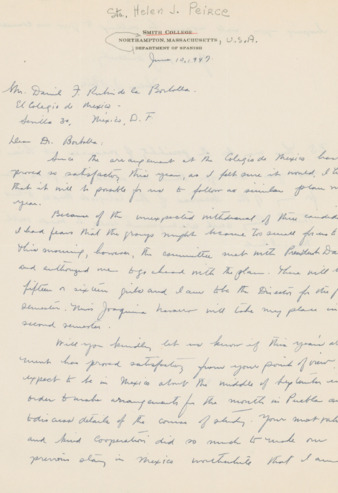 Sta. Helen J. Peirce
SMITH COLLEGE
NORTHAMPTON, MASSACHUSETTS, U.S.A.
DEPARTMENT OF SPANISH
June 10, 1947
Mr. Daniel F. Rubin de la Borbolla
El Colegio de Mexico
Sevilla 30, Mexico, D. F.
Dear Dr. Borbolla:
Since the arrangement at the Colegio de Mexico
proved so satisfactory this year, as I felt sure it would, I
that it will be possible for us to follow a similar plan
year.
Because of the unexpected withdrawal of three
I had fears that the group might become too small for us to
This morning, however, the committee met with President
and authorized me to go ahead with the plan. There will
fifteen or sixteen girls and I am to be the Director for the
semester. Miss Joaquina Navarro will take my place
second semester.
Will you kindly let us know if this year's
ment has proved satisfactory from your point of view.
expect to be in Mexico about the middle of September
order to make arrangements for the month in Puebla
to discuss details of the course of study. Your
and kind cooperation did so much to make our
previous stay in Mexico worthwhile that I am